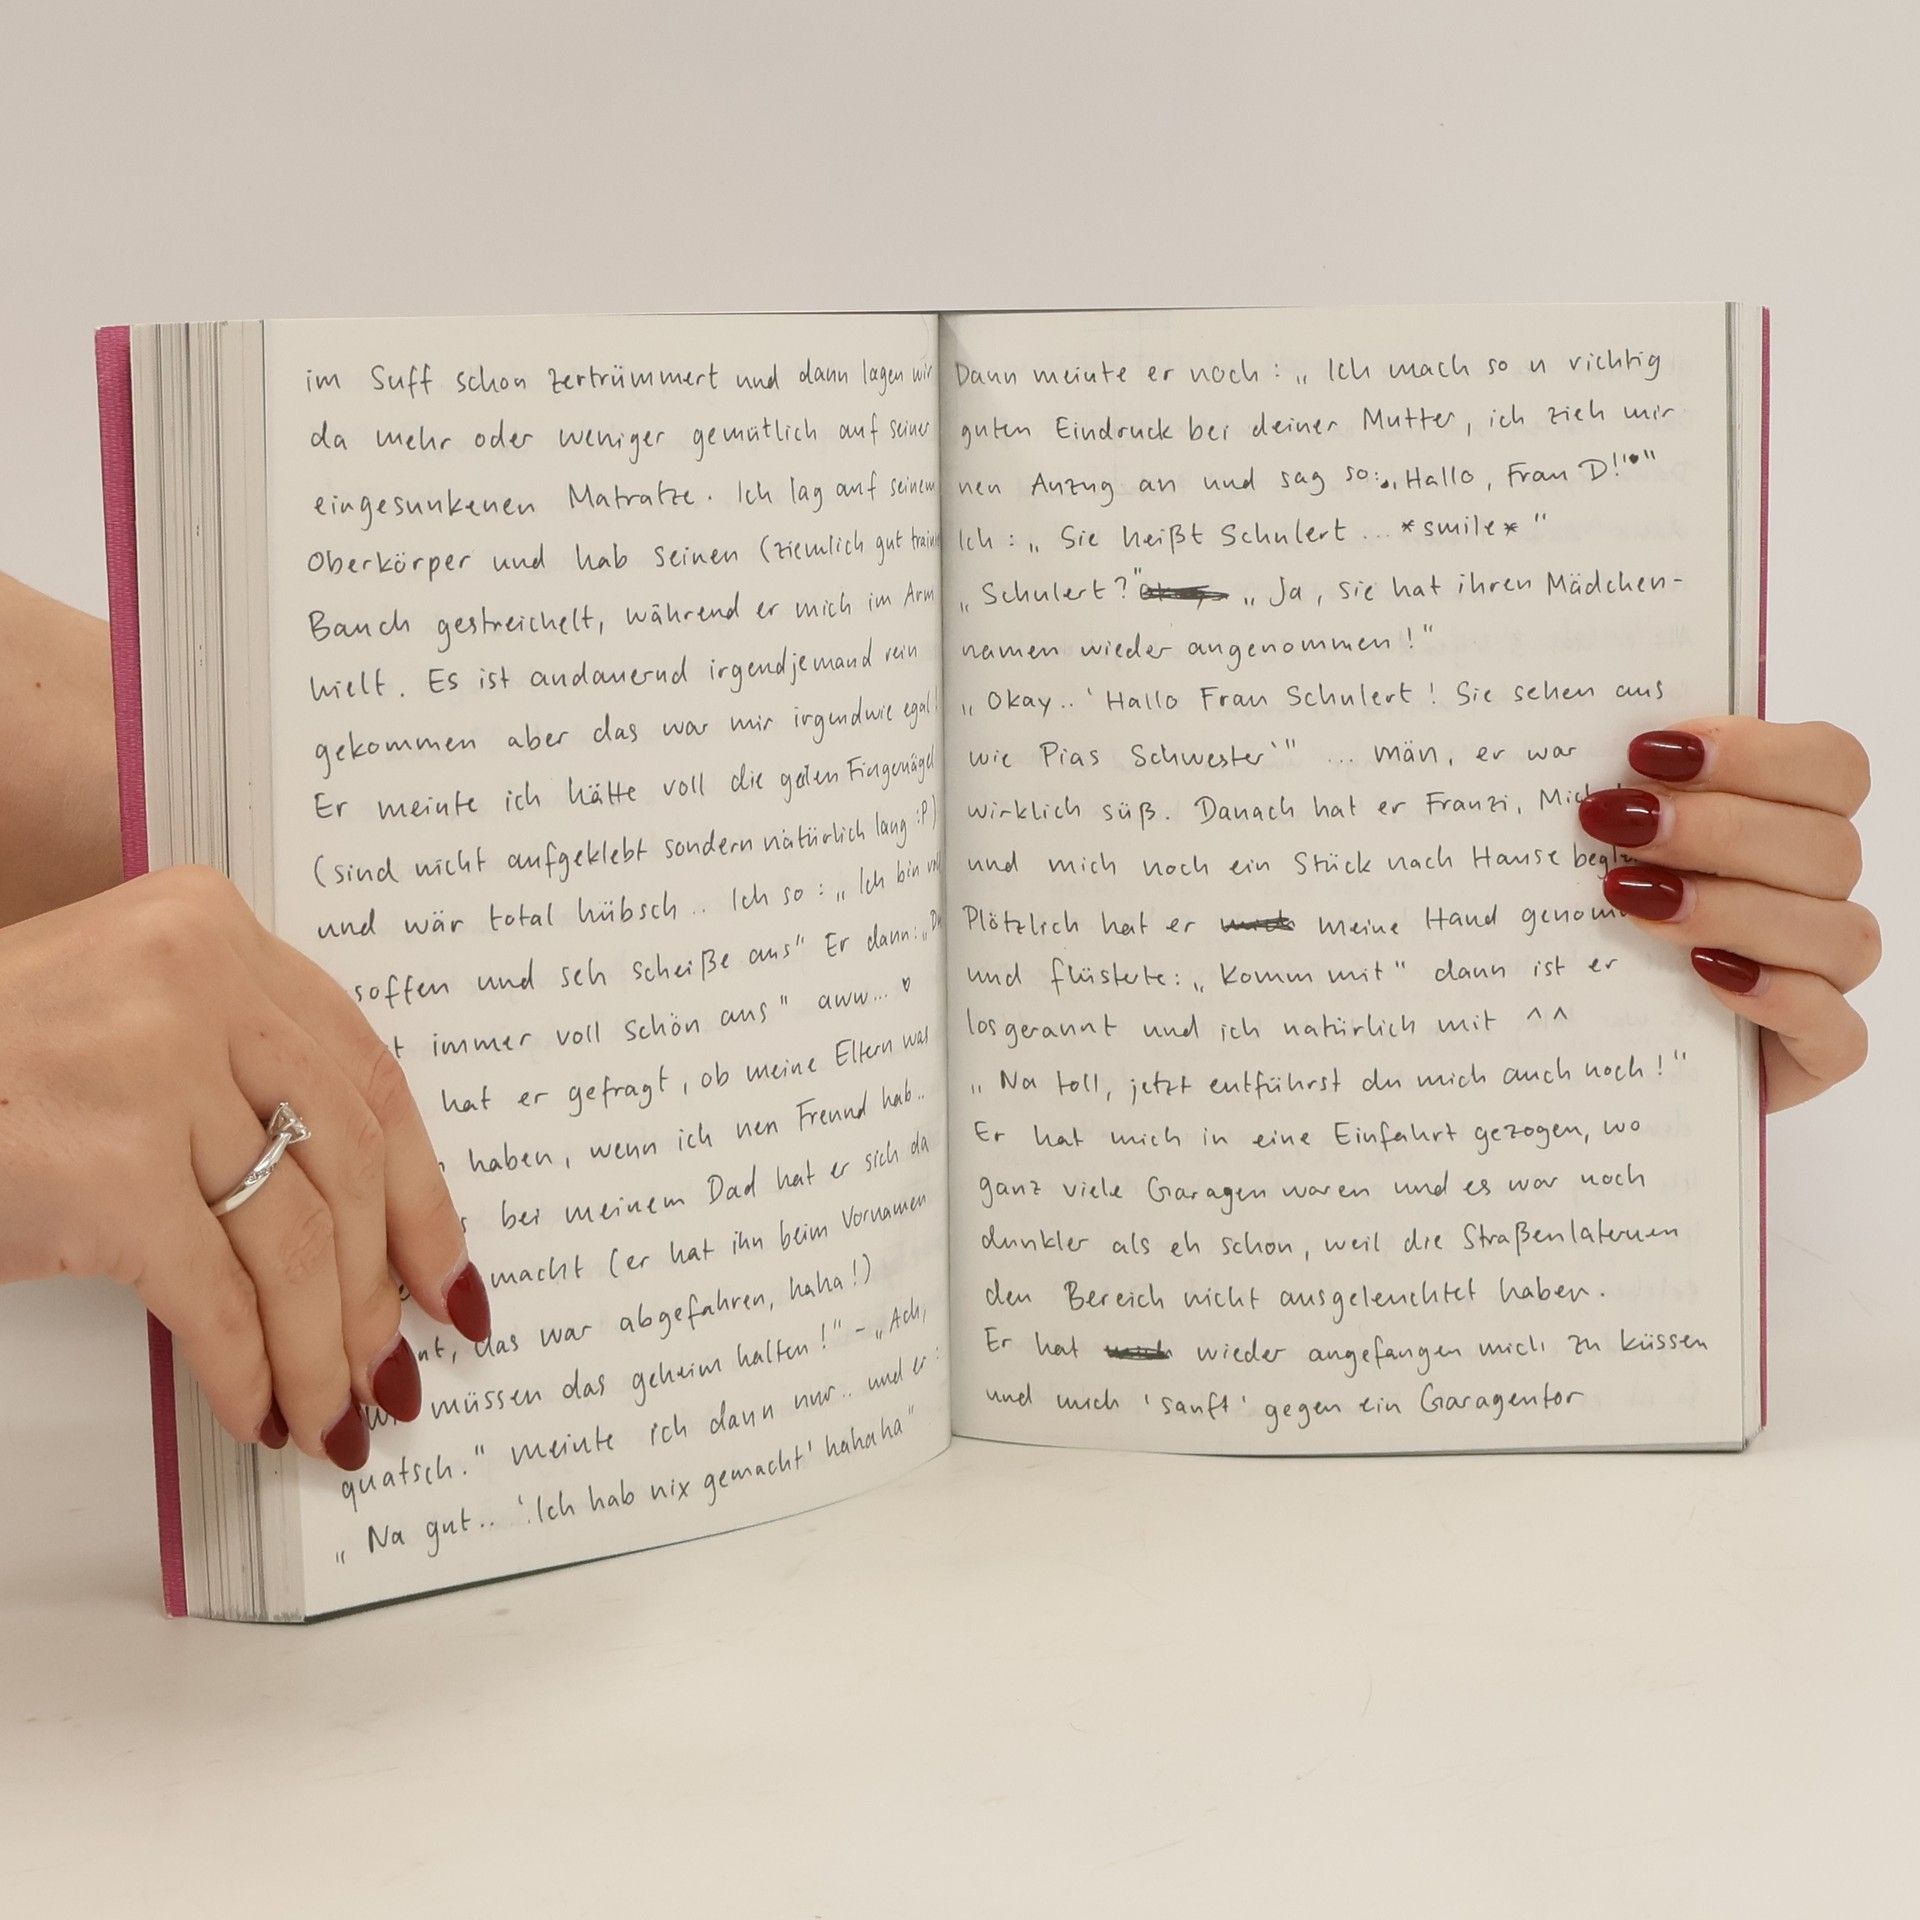 im Suff schon zertrümmert und dann lagen wir
da mehr oder weniger gemütlich auf seiner
eingesunkenen Matratze. Ich lag auf seinem
Oberkörper und hab seinen (ziemlich gut
Bauch gestreichelt, während er mich im Arm
hielt. Es ist andauernd irgendjemand rein
gekommen aber das war mir irgendwie egal!
Er meinte ich hätte voll die geilen Fingernägel
(sind nicht aufgeklebt sondern natürlich lang :P)
und wär total hübsch.. Ich so: „Ich bin
soffen und seh scheiße aus" Er dann: „
immer voll schön aus" aww... ♡
hat er gefragt, ob meine Eltern was
haben, wenn ich nen Freund hab..
bei meinem Dad hat er sich da
macht (er hat ihn beim Vornamen
das war abgefahren, haha!)
müssen das geheim halten!" – „Ach,
quatsch." meinte ich dann nur.. und er:
„Na gut.. 'Ich hab nix gemacht' hahaha"
Dann meinte er noch: „Ich mach so n richtig
guten Eindruck bei deiner Mutter, ich zieh mir
nen Anzug an und sag so: „Hallo, Frau D!""
Ich: „Sie heißt Schulert ... *smile*"
„Schulert?" „Ja, sie hat ihren Mädchen-
namen wieder angenommen!"
„Okay.. 'Hallo Frau Schulert! Sie sehen aus
wie Pias Schwester'" ... män, er war
wirklich süß. Danach hat er Franzi,
und mich noch ein Stück nach Hause
Plötzlich hat er meine Hand
und flüsterte: „Komm mit" dann ist er
losgerannt und ich natürlich mit ^^
„Na toll, jetzt entführst du mich auch noch!"
Er hat mich in eine Einfahrt gezogen, wo
ganz viele Garagen waren und es war noch
dunkler als eh schon, weil die Straßenlaternen
den Bereich nicht ausgeleuchtet haben.
Er hat wieder angefangen mich zu küssen
und mich 'sanft' gegen ein Garagentor